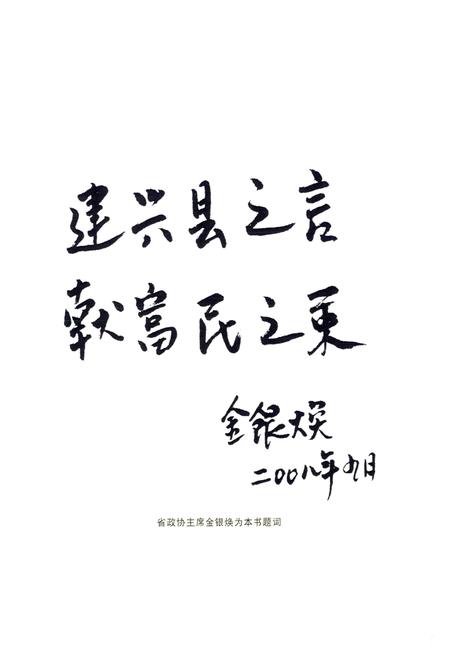 建兴县之言
献富民之策
金银焕
二00八年九月
省政协主席金银焕为本书题词